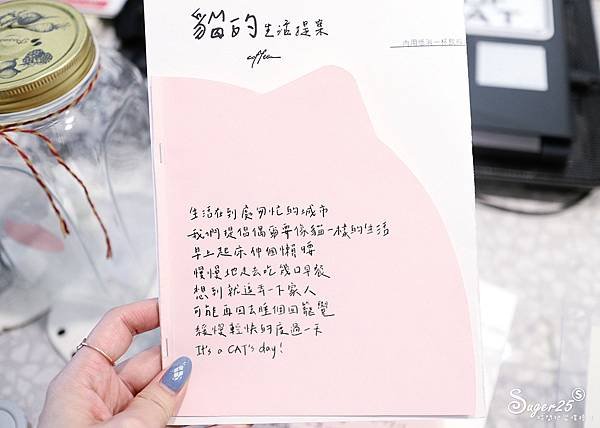 貓的生活提案
coffee
內用低消一杯飲料
生活在到處匆忙的城市
我們提倡偶爾要像貓一樣的生活
早上起床伸個懶腰
慢慢地走去吃幾口早餐
想到就追弄一下家人
可能再回去睡個回籠覺
緩慢輕快的度過一天
It's a CAT's day!
CAT
Suger25